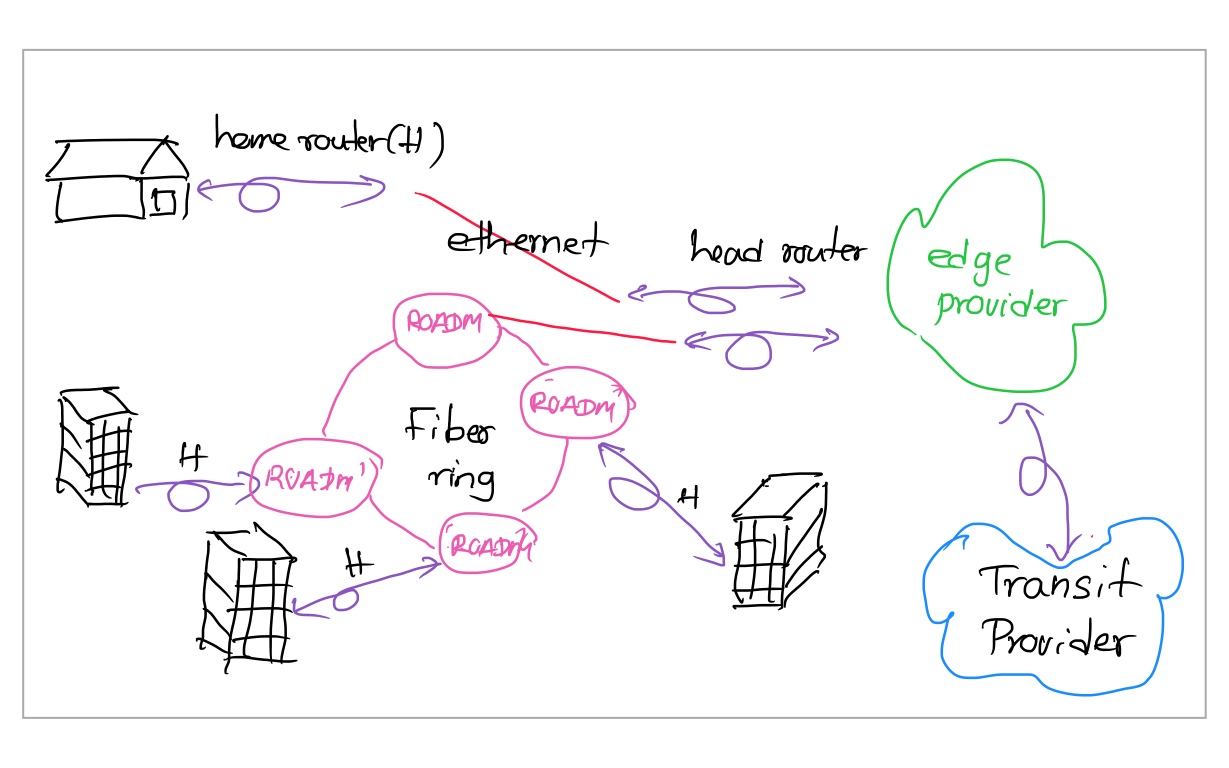 home router(H)
ethernet
head router
edge
provider
ROADM
ROADM
Fiber
ring
H
ROADM
H
ROADM
H
Transit
Provider